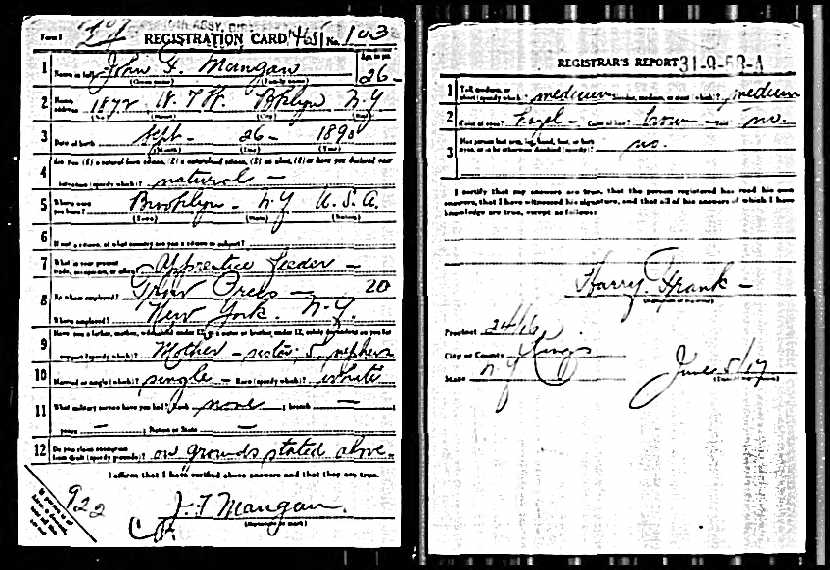 Form 1
REGISTRATION CARD No. 103
1 Name in full John F. Mangan Age, in yrs. 26
(Given name) (Family name)
2 Home address 1872 W. 7 St. Bklyn N.Y
(No.) (Street) (City) (State)
3 Date of birth Sept - 26 - 1890
(Month) (Day) (Year)
4 Are you (1) a natural born citizen, (2) a naturalized citizen, (3) an alien, (4) or have you declared your
intention (specify which)? natural -
5 Where were you born? Brooklyn - N.Y U.S.A.
(Town) (State) (Nation)
6 If not a citizen, of what country are you a citizen or subject?
7 What is your present trade, occupation, or office? Apprentice feeder - 20
8 By whom employed? Press -
Where employed? New York. N.Y.
9 Have you a father, mother, wife, child under 12, or a sister or brother under 12, solely dependent on you for
support (specify which)? Mother - sister, 5 nephews
10 Married or single (which)? single - Race (specify which)? white
11 What military service have you had? Rank none ; branch -
years - ; Nation or State -
12 Do you claim exemption from draft (specify grounds)? on grounds stated above.
I affirm that I have verified above answers and that they are true.
J. F. Mangan.
(Signature or mark)
922
REGISTRAR'S REPORT 31-9-52-A
1 Tall, medium, or short (specify which)? medium Slender, medium, or stout (which)? medium
2 Color of eyes? hazel - Color of hair? brown - Bald? no.
3 Has person lost arm, leg, hand, foot, or both eyes, or is he otherwise disabled (specify)? no.
I certify that my answers are true, that the person registered has read his own
answers, that I have witnessed his signature, and that all of his answers of which I have
knowledge are true, except as follows:
Harry Frank -
(Signature of registrar)
Precinct 24/16
City or County Kings
State N.Y
June 5/17
(Date of registration)